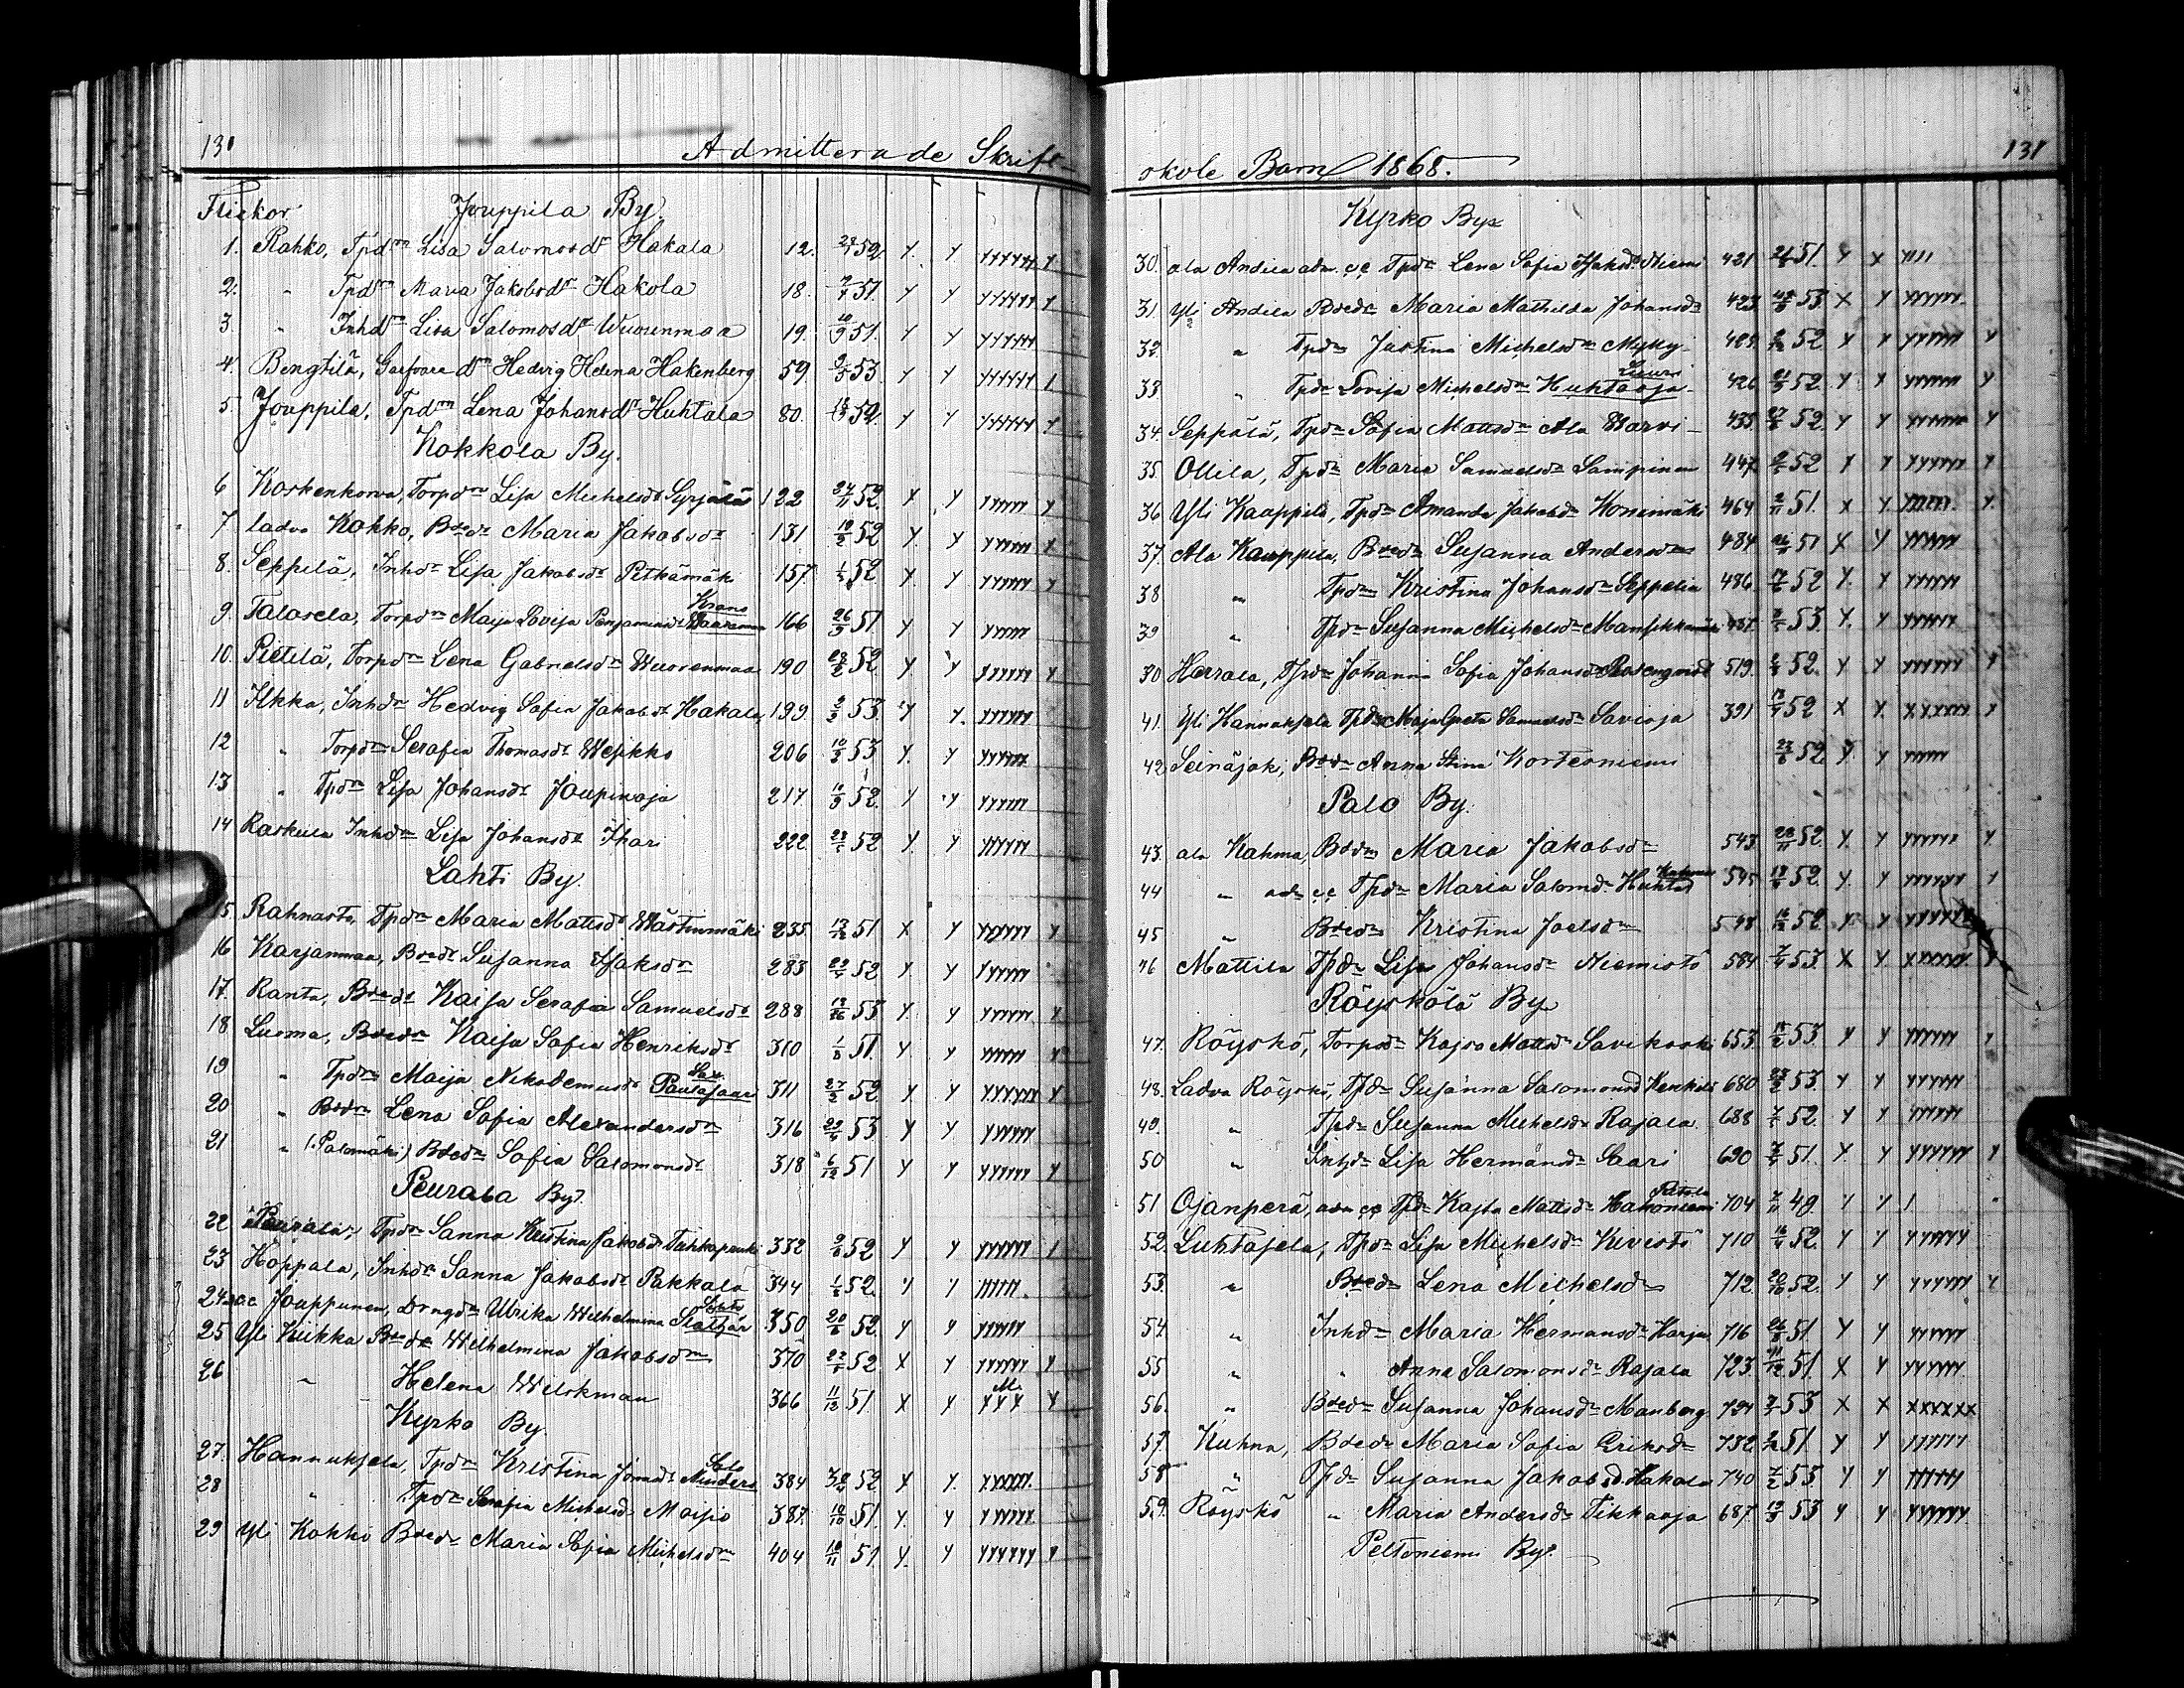 130
Admitterade Skrift-
Flickor
Jouppila By.
1. Rahko, Tpdrn Lisa Salomosdr Hakala 12. 52 y y yyyyyy y
2. " Tpdrn Maria Jakobsdr Hakola 18. 51 y y yyyyyy y
3 " Inhdrn Lisa Salomosdr Wuorenmaa 19. 10/9 51. y y yyyyyy
4. Bengtilä, drn Hedvig Helena Hakenberg 59 53 y y yyyyyy
5 Jouppila, Tpdrn Lena Johansdr Huhtala 80. 52. y y yyyyyy y
Kokkola By.
6 Koskenkorva, Torpdrn Lisa Michelsdr Syrjälä 122 24/11 52. x y yyyyyy y
7 ladvo Kokko, Bdedr Maria Jakobsdr 131 10/2 52 y. y yyyyyy y
8. Seppilä, Inhdr Lisa Jakobsdr Pitkämäki 157 52 y. y yyyyyy y
9. Talasela, Torpdrn Maija Lovisa Benjaminsdr Krans 166 26/9 51 y y yyyyy
10. Pietilä, Torpdrn Lena Gabrielsdr Wuorenmaa 190 52 y. y yyyyyy y
11 Ilkka, Inhdrn Hedvig Sofia Jakobsdr Hakala 199 53. y y. yyyyyy
12 " Torpdrn Serafia Thomasdr Wejkko 206 53 y. y yyyyyy
13 " Tpdrn Lisa Johansdr Joupinoja 217. 52. y y yyyyyy
14 Raskula Inhdrn Lisa Johansdr Ihari 222 52 y. y yyyyyy
Lahti By.
15. Rahnasto, Tpdrn Maria Mattsdr Wästinmäki 235 51 x y yyyyyy y
16 Karjanmaa, Bdedr Susanna Isaksdrn 283 52 y. y yyyyyy
17. Ranta, Bdedr Kaisa Serafia Samuelsdr 288 53 y. y yyyyyy y
18 Luoma, Bdedrn Kaisa Sofia Henriksdr 310 1/8 51. y y yyyyyy y
19 " Tpdrn Maija Nikodemusdr Pautasaari 311 27/2 52 y y yyyyyy y
20 " Bdedrn Lena Sofia Alexandersdrn 316 53 y y yyyyyy
21 " (Palomäki) Bdedrn Sofia Salomonsdr 318 6/12 51 y y yyyyyy y
Peurala By.
22 Peurala, Tpdrn Sanna Kristina Jakobsdr 332 52 y y yyyyyy
23 Hoppala, Inhdrn Sanna Jakobsdr Pakkala 344 52. y y yyyyy
24 Jouppunen, Drngdrn Ulrika Wilhelmina 350 20/6 52 y y yyyyyy
25 Yli Kiikka Bdedrn Wilhelmina Jakobsdrn 370 52 x y yyyyyy y
26 " Helena Wilskman 366 11/12 51 x x yyy M. y
Kyrko By.
27. Hannuksela, Tpdrn Kristina Jonasdr Salo 384 52 x y. xxxxxx
28 " Tpdrn Serafia Michelsdr Maijio 387. 10/10 51. y. y yyyyyy
29 Yli Kokko Bdedr Maria Sofia Michelsdrn 404 18/11 51 y. y yyyyyy y
131
skole Barn 1868.
Kyrko By
30. ala Andila adm. Tpdr Lena Sofia Isaksdr Niemi 421 51. y x yyyy
31. Yli Andila Bdedr Maria Mathilda Johansdr 423. 53 x y yyyyyy
32. " Tpdrn Justina Michelsdrn Mylly 52 x y yyyyyy y
33 " Tpdr Lovisa Michelsdrn Huhtaoja Luuri 426 52. y y yyyyyy y
34. Seppälä, Tpdr Sofia Mattsdrn Ala Warvi 435 52. y y yyyyyy y
35. Ollila, Tpdr Maria Samuelsdr Lampinen 447. 52 y y yyyyyy y
36 Yli Kauppila, Tpdr Amanda Jakobsdr Konimäki 464 2/11 51. x y yyyyyy y.
37. Ala Kauppila, Bdedr Susanna Andersdrn 484 51 x y yyyyyy
38 " Tpdrn Kristina Johansdr Seppelin 486. 52 y. y yyyyyy
39 " Tpdr Susanna Michelsdr Mansikkamäki 53. y. y yyyyyy
30 Herrala, Tpdr Johanna Sofia Johansdr Rosenqvist 519. 52 y y yyyyyy y
41. Yli Hannuksela Tpdr Maja Greta Samuelsdr Savioja 391 52 x y. xxxxxx x
42. Seinäjok, Bdedr Anna Stina Korteoniemi 23/6 52 y. y yyyyy
Palo By.
43. ala Kahma, Bdedrn Maria Jakobsdr 543. 28/11 52. y. y yyyyyy y.
44 " adm. Tpdr Maria Salomdr Huhta 545 52. y. y yyyyyy
45 " Bdedr Kristina Joelsdrn 548 52 y. y yyyyyy
46 Mattila Tpdr Lisa Johansdr Niemistö 584 53. x y. xxxxxx
Röyskölä By
47. Röyskö, Torpdr Kajsa Mattsdr Savikoski 653 53. y y yyyyyy y
48. Ladva Röyskö, Tpdr Susanna Salomonsdr 680 53. y y yyyyyy
49. " Tpdr Susanna Michelsdr Rajala 688 52. y y yyyyyy
50 " Inhdr Lisa Hermansdr Saari 690 51. y. y yyyyyy y
51 Ojanperä, adm. Tpdr Kajsa Mattsdr Hakoniemi 704 7/11 49 y y
52. Luhtasela, Tpdr Lisa Michelsdr Kivistö 710 52. y y yyyyyy
53. " Bdedr Lena Michelsdr 712. 20/10 52. y y yyyyyy y
54. " Inhdr Maria Hermansdr Harju 716 26/8 51 y y yyyyyy
55 " " Anna Salomonsdr Rajala 723. 51. x y yyyyyy
56. " Bdedr Susanna Johansdr Manberg 724 53 x x xxxxxx
57. Kuhna, Bdedr Maria Sofia Eriksdr 732 51. y y yyyyyy
58 " Tpdr Susanna Jakobsdr Hakala 740 7/2 53. y. y yyyyyy
59. Röyskö " Maria Andersdr Tikkaoja 687. 53 y y yyyyyy
Peltoniemi By.